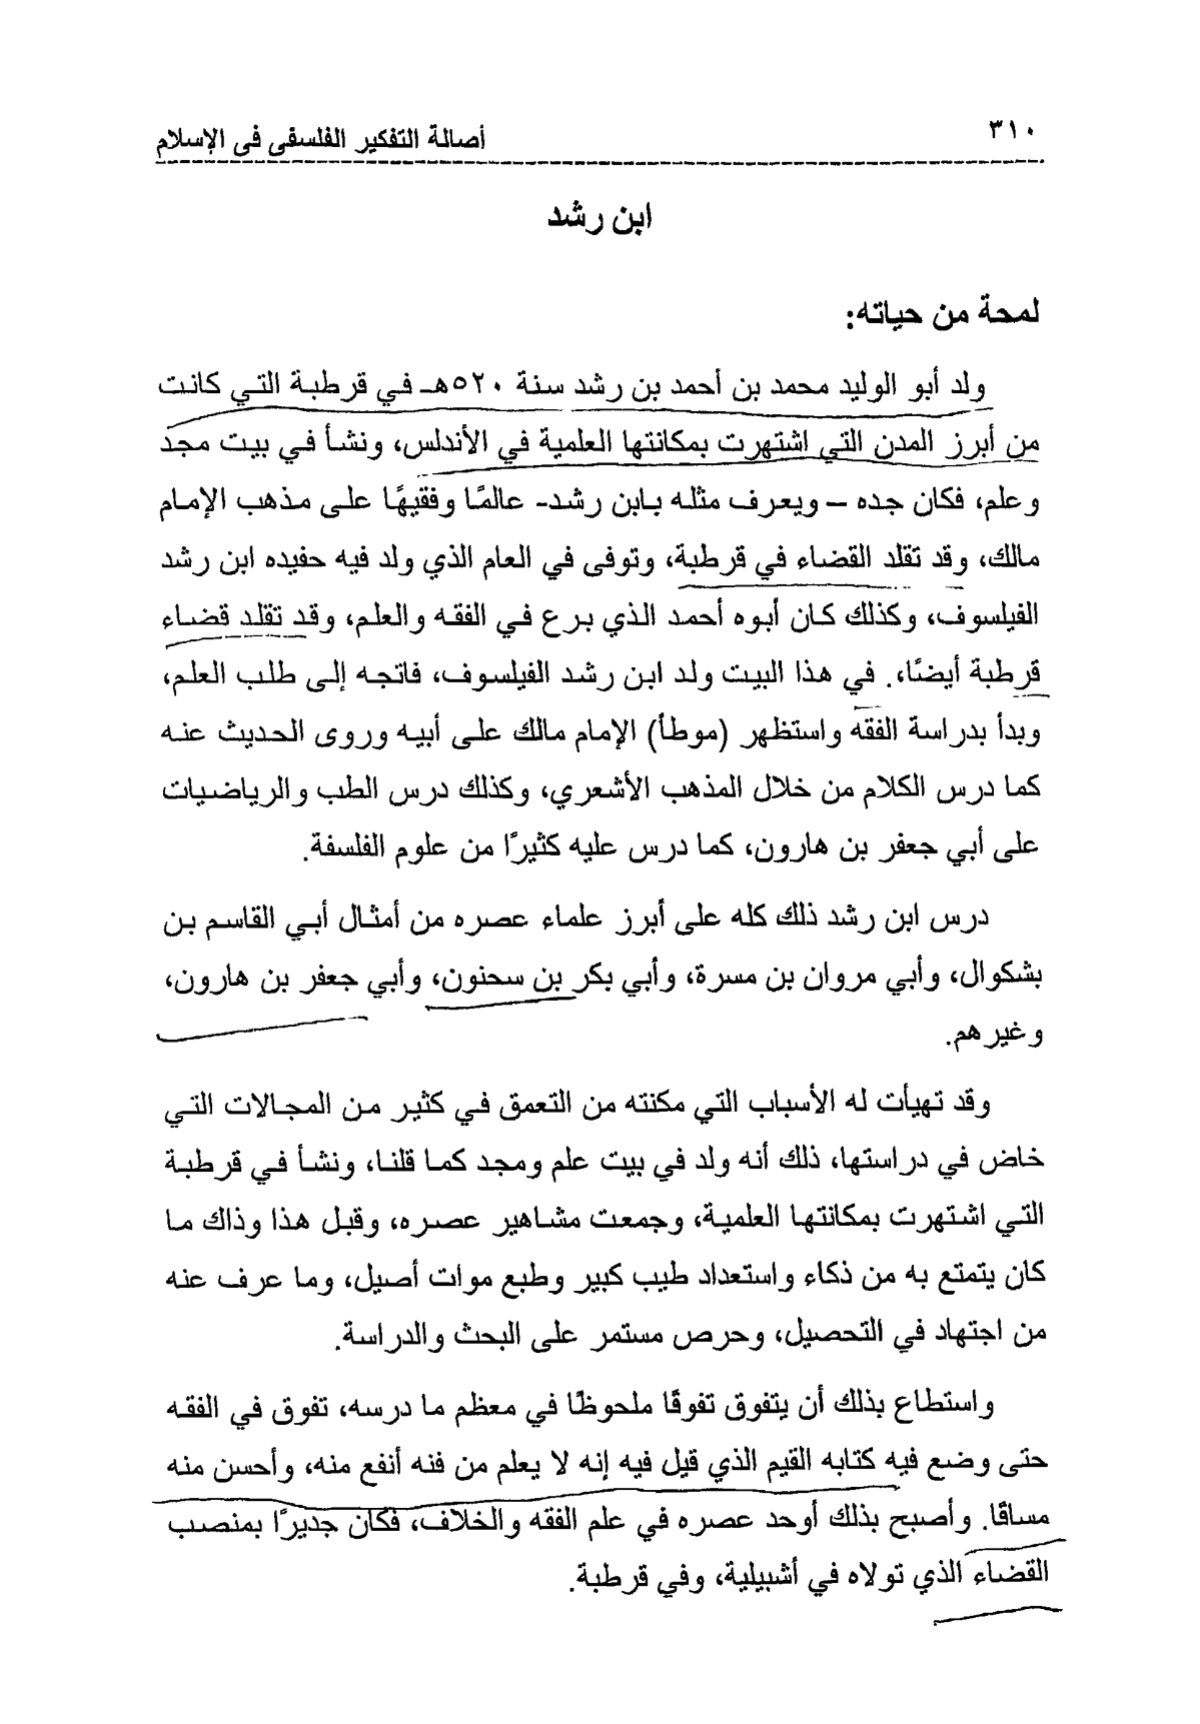 ٣١٠
أصالة التفكير الفلسفى فى الإسلام
ابن رشد
لمحة من حياته:
ولد أبو الوليد محمد بن أحمد بن رشد سنة ٥٢٠هـ في قرطبة التي كانت
من أبرز المدن التي اشتهرت بمكانتها العلمية في الأندلس، ونشأ في بيت مجد
وعلم، فكان جده – ويعرف مثله بابن رشد- عالمًا وفقيهًا على مذهب الإمام
مالك، وقد تقلد القضاء في قرطبة، وتوفى في العام الذي ولد فيه حفيده ابن رشد
الفيلسوف، وكذلك كان أبوه أحمد الذي برع في الفقه والعلم، وقد تقلد قضاء
قرطبة أيضًا،. في هذا البيت ولد ابن رشد الفيلسوف، فاتجه إلى طلب العلم،
وبدأ بدراسة الفقه واستظهر (موطأ) الإمام مالك على أبيه وروى الحديث عنه
كما درس الكلام من خلال المذهب الأشعري، وكذلك درس الطب والرياضيات
على أبي جعفر بن هارون، كما درس عليه كثيرًا من علوم الفلسفة.
درس ابن رشد ذلك كله على أبرز علماء عصره من أمثال أبي القاسم بن
بشكوال، وأبي مروان بن مسرة، وأبي بكر بن سحنون، وأبي جعفر بن هارون،
وغيرهم.
وقد تهيأت له الأسباب التي مكنته من التعمق في كثير من المجالات التي
خاض في دراستها، ذلك أنه ولد في بيت علم ومجد كما قلنا، ونشأ في قرطبة
التي اشتهرت بمكانتها العلمية، وجمعت مشاهير عصره، وقبل هذا وذاك ما
كان يتمتع به من ذكاء واستعداد طيب كبير وطبع موات أصيل، وما عرف عنه
من اجتهاد في التحصيل، وحرص مستمر على البحث والدراسة.
واستطاع بذلك أن يتفوق تفوقًا ملحوظًا في معظم ما درسه، تفوق في الفقه
حتى وضع فيه كتابه القيم الذي قيل فيه إنه لا يعلم من فنه أنفع منه، وأحسن منه
مساقًا. وأصبح بذلك أوحد عصره في علم الفقه والخلاف، فكان جديرًا بمنصب
القضاء الذي تولاه في أشبيلية، وفي قرطبة.